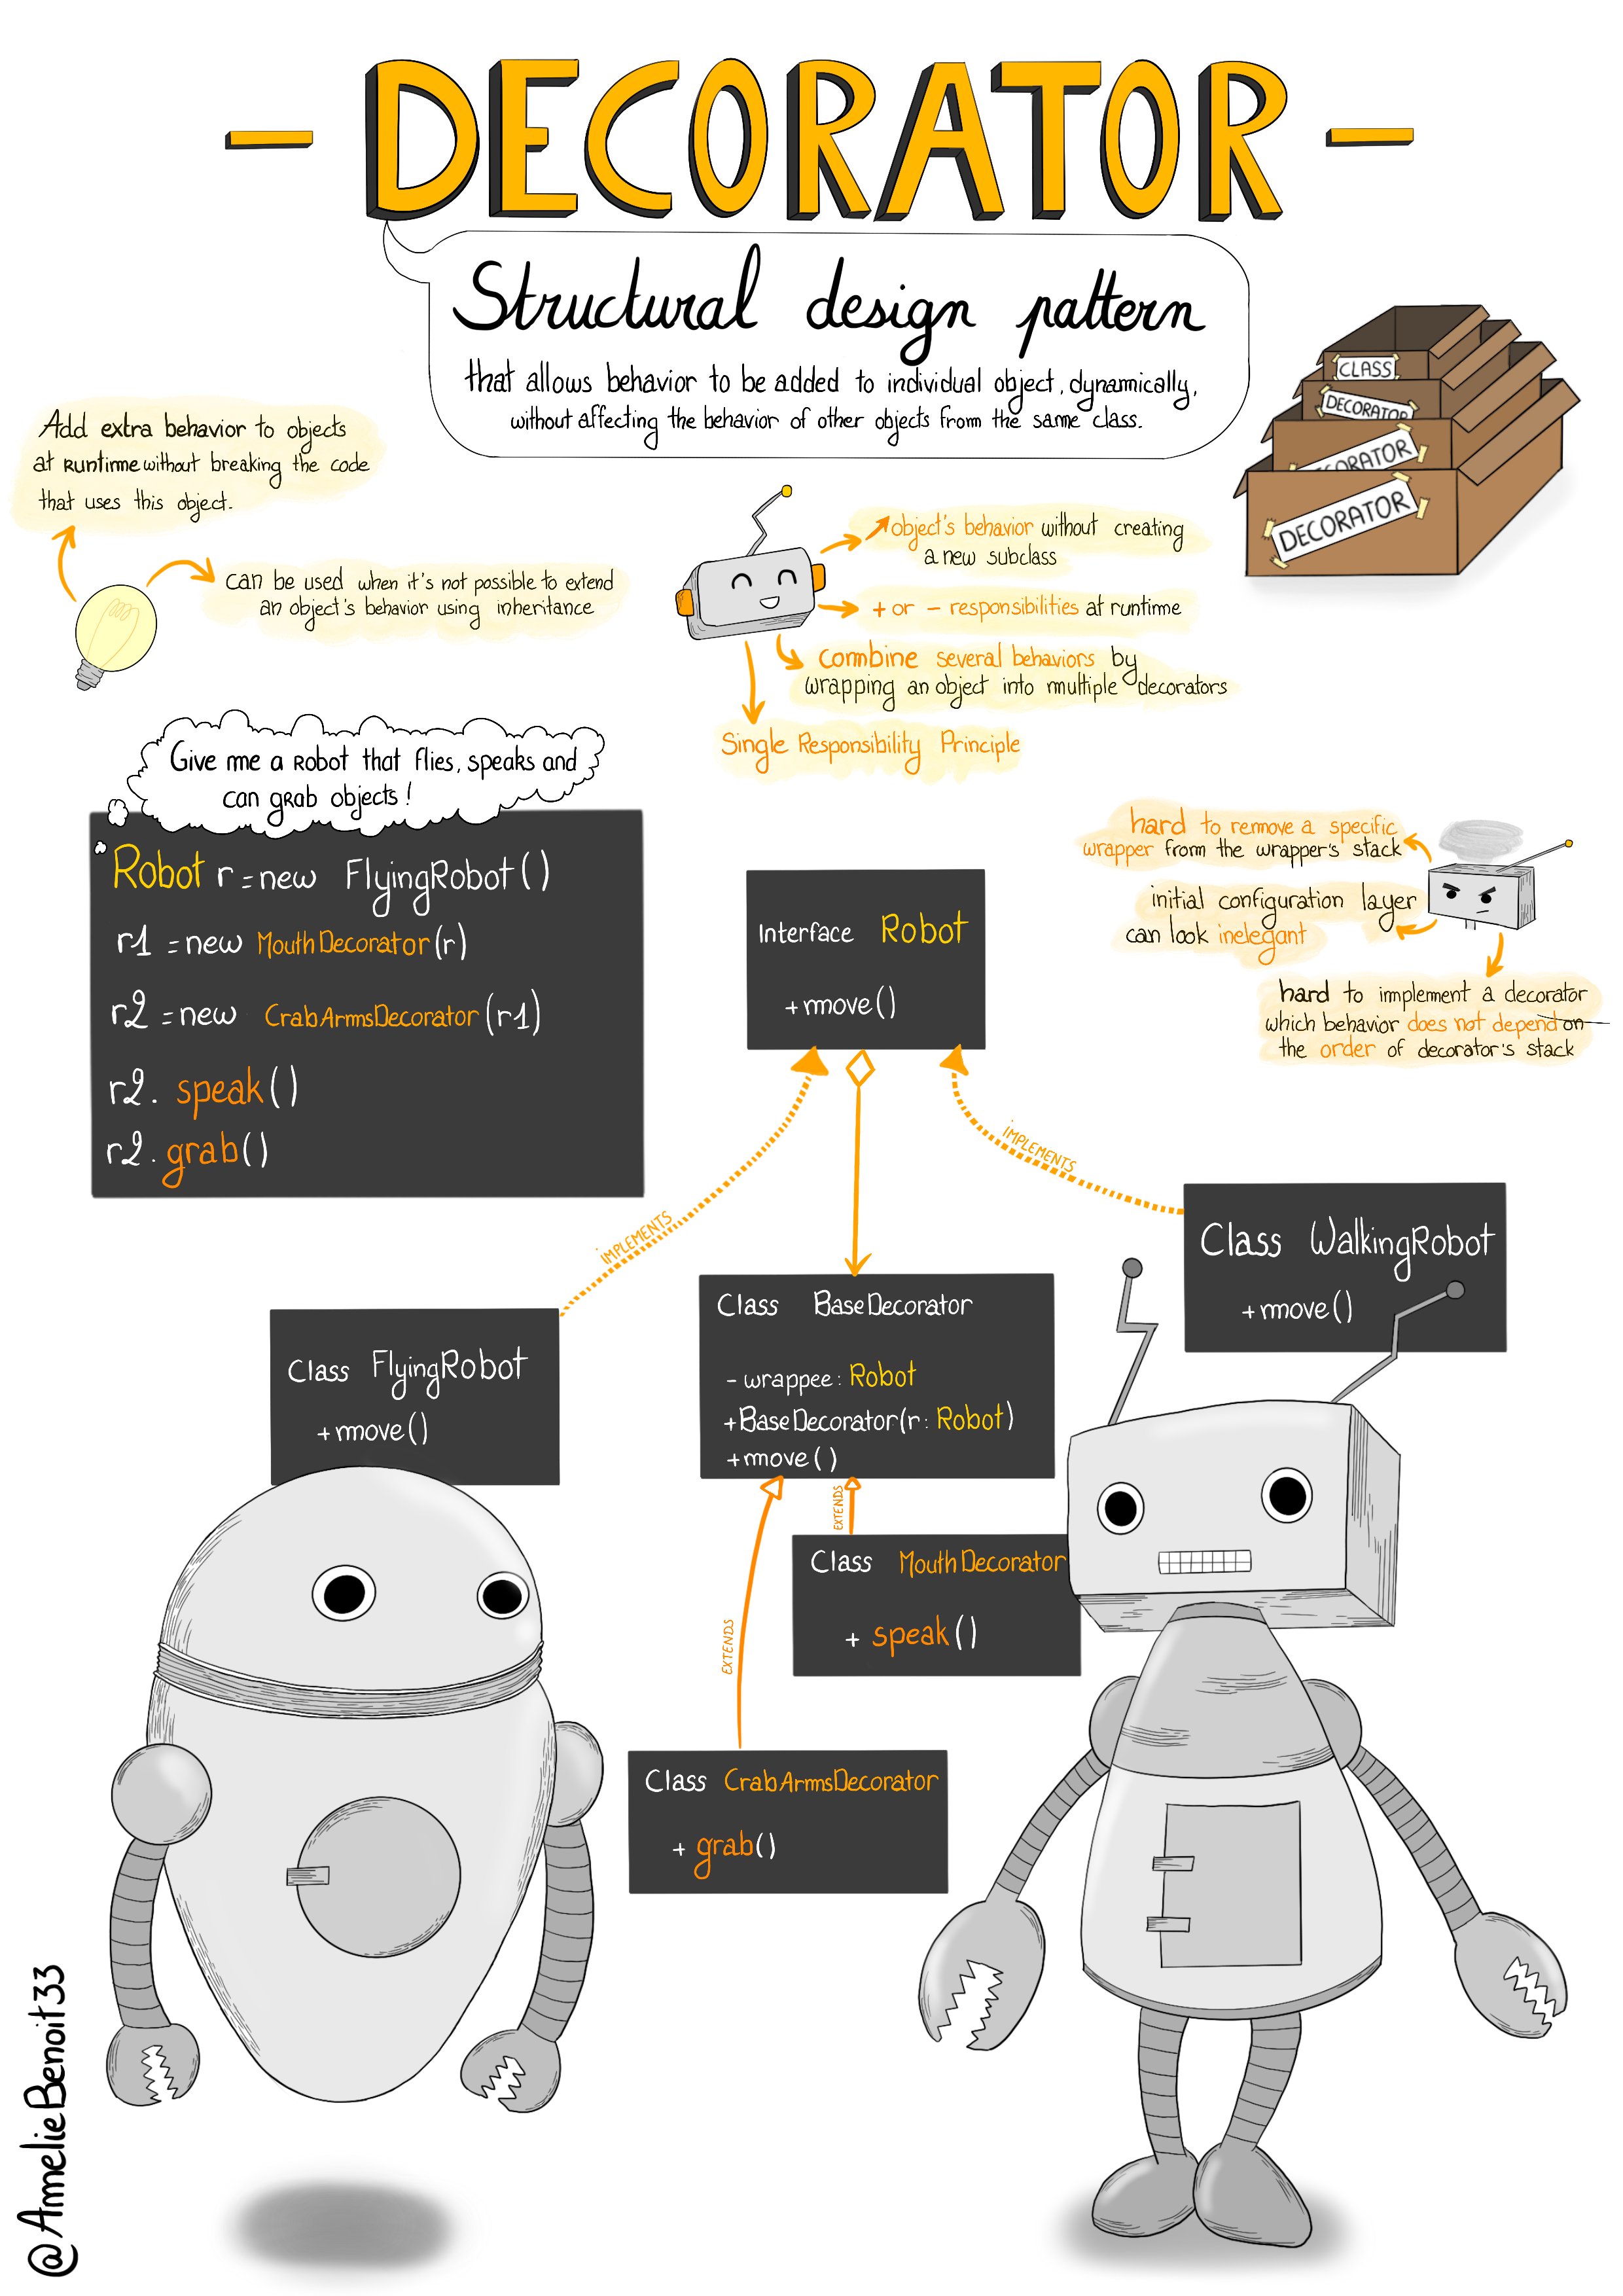 - DECORATOR -
Structural design pattern
that allows behavior to be added to individual object, dynamically,
without affecting the behavior of other objects from the same class.
CLASS
DECORATOR
DECORATOR
DECORATOR
Add extra behavior to objects
at runtime without breaking the code
that uses this object.
can be used when it's not possible to extend
an object's behavior using inheritance
object's behavior without creating
a new subclass
+ or - responsibilities at runtime
combine several behaviors by
wrapping an object into multiple decorators
Single Responsibility Principle
Give me a robot that flies, speaks and
can grab objects!
Robot r = new FlyingRobot()
r1 = new MouthDecorator(r)
r2 = new CrabArmsDecorator(r1)
r2. speak()
r2. grab()
hard to remove a specific
wrapper from the wrapper's stack
initial configuration layer
can look inelegant
hard to implement a decorator
which behavior does not depend on
the order of decorator's stack
Interface Robot
+move()
IMPLEMENTS
IMPLEMENTS
Class WalkingRobot
+move()
Class FlyingRobot
+move()
Class BaseDecorator
- wrappee: Robot
+BaseDecorator(r: Robot)
+move()
EXTENDS
EXTENDS
Class MouthDecorator
+ speak()
Class CrabArmsDecorator
+ grab()
@AmelieBenoit33